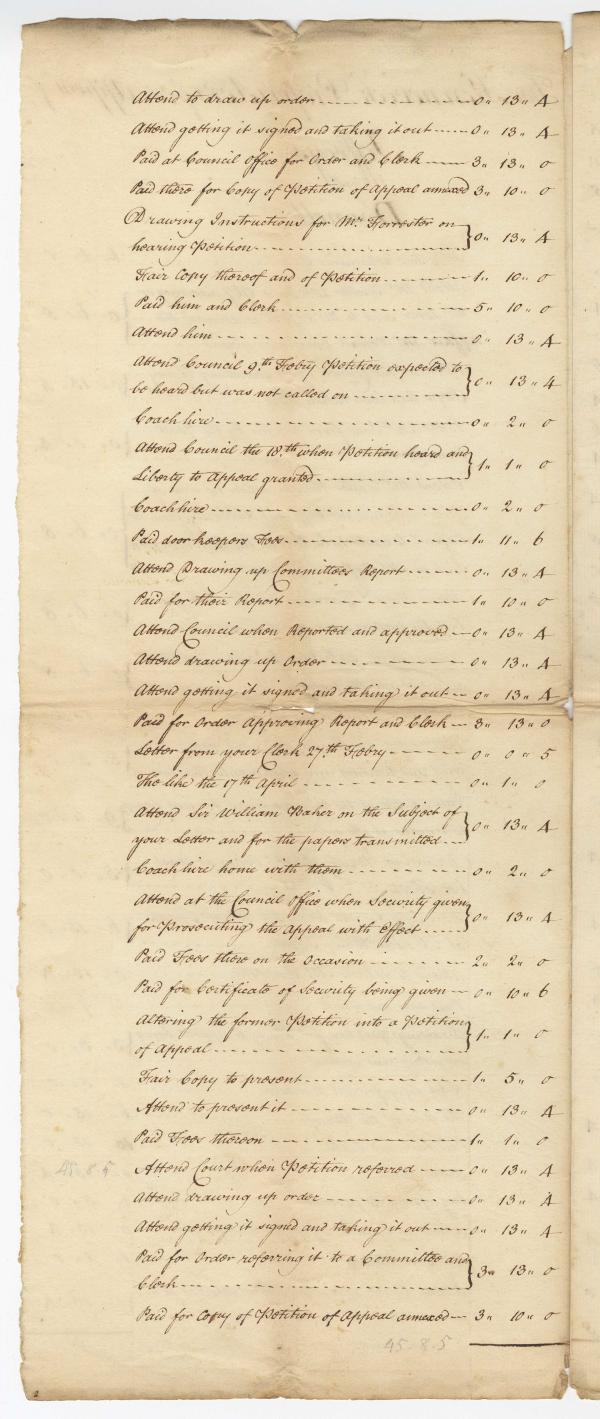 Attend to draw up order 0 " 13 " 4
Attend getting it signed and taking it out 0 " 13 " 4
Paid at Council Office for Order and Clerk 3 " 13 " 0
Paid there for Copy of Petition of Appeal annexed 3 " 10 " 0
Drawing Instructions for Mr. Forrester on
hearing Petition } 0 " 13 " 4
Fair Copy thereof and of Petition 1 " 10 " 0
Paid him and Clerk 5 " 10 " 0
Attend him 0 " 13 " 4
Attend Council 9th Febry Petition expected to
be heard but was not called on } 0 " 13 " 4
Coach hire 0 " 2 " 0
Attend Council the 18th when Petition heard and
Liberty to Appeal granted } 1 " 1 " 0
Coach hire 0 " 2 " 0
Paid door keepers Fees 1 " 11 " 6
Attend Drawing up Committees Report 0 " 13 " 4
Paid for their Report 1 " 10 " 0
Attend Council when Reported and approved 0 " 13 " 4
Attend drawing up Order 0 " 13 " 4
Attend getting it signed and taking it out 0 " 13 " 4
Paid for Order Approving Report and Clerk 3 " 13 " 0
Letter from your Clerk 27th Febry 0 " 0 " 5
The like the 17th April 0 " 1 " 0
Attend Sir William Baker on the Subject of
your Letter and for the papers transmitted } 0 " 13 " 4
Coach hire home with them 0 " 2 " 0
Attend at the Council Office when Security given
for Prosecuting the Appeal with Effect } 0 " 13 " 4
Paid Fees there on the Occasion 2 " 2 " 0
Paid for Certificate of Security being given 0 " 10 " 6
Altering the former Petition into a Petition
of Appeal } 1 " 1 " 0
Fair Copy to present 1 " 5 " 0
Attend to present it 0 " 13 " 4
Paid Fees thereon 1 " 1 " 0
45.8.5
Attend Court when Petition referred 0 " 13 " 4
Attend drawing up order 0 " 13 " 4
Attend getting it signed and taking it out 0 " 13 " 4
Paid for Order referring it to a Committee and
Clerk } 3 " 13 " 0
Paid for Copy of Petition of Appeal annexed 3 " 10 " 0
45.8.5
2